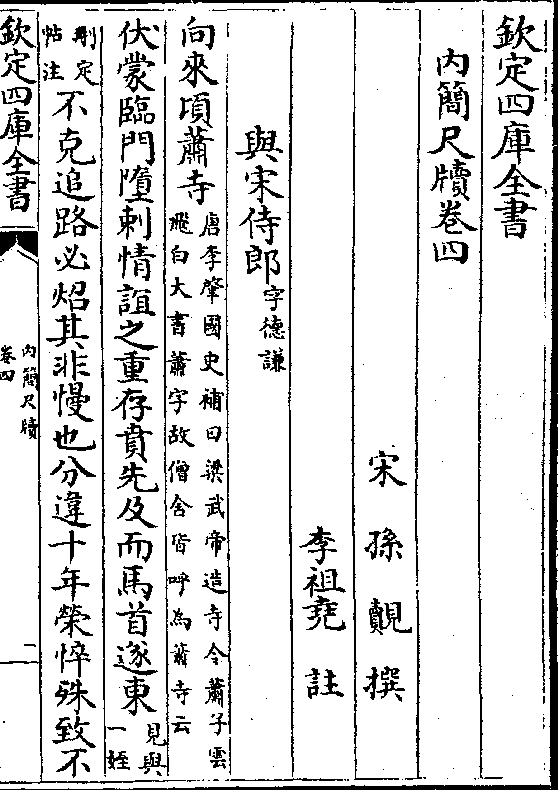 欽定四庫全書
內簡尺牘卷四
宋 孫覿 撰
李祖堯 註
與宋侍郎字德謙
向來頃蕭寺唐李肇國史補曰梁武帝造寺令蕭子雲
飛白大書蕭字故僧舍皆呼為蕭寺云
伏蒙臨門墮刺情誼之重存賁先及而馬首遂東見與
一姪
荆定
帖注不克追路必炤其非慢也分違十年榮悴殊致不
欽定四庫全書
內簡尺牘
卷四
二